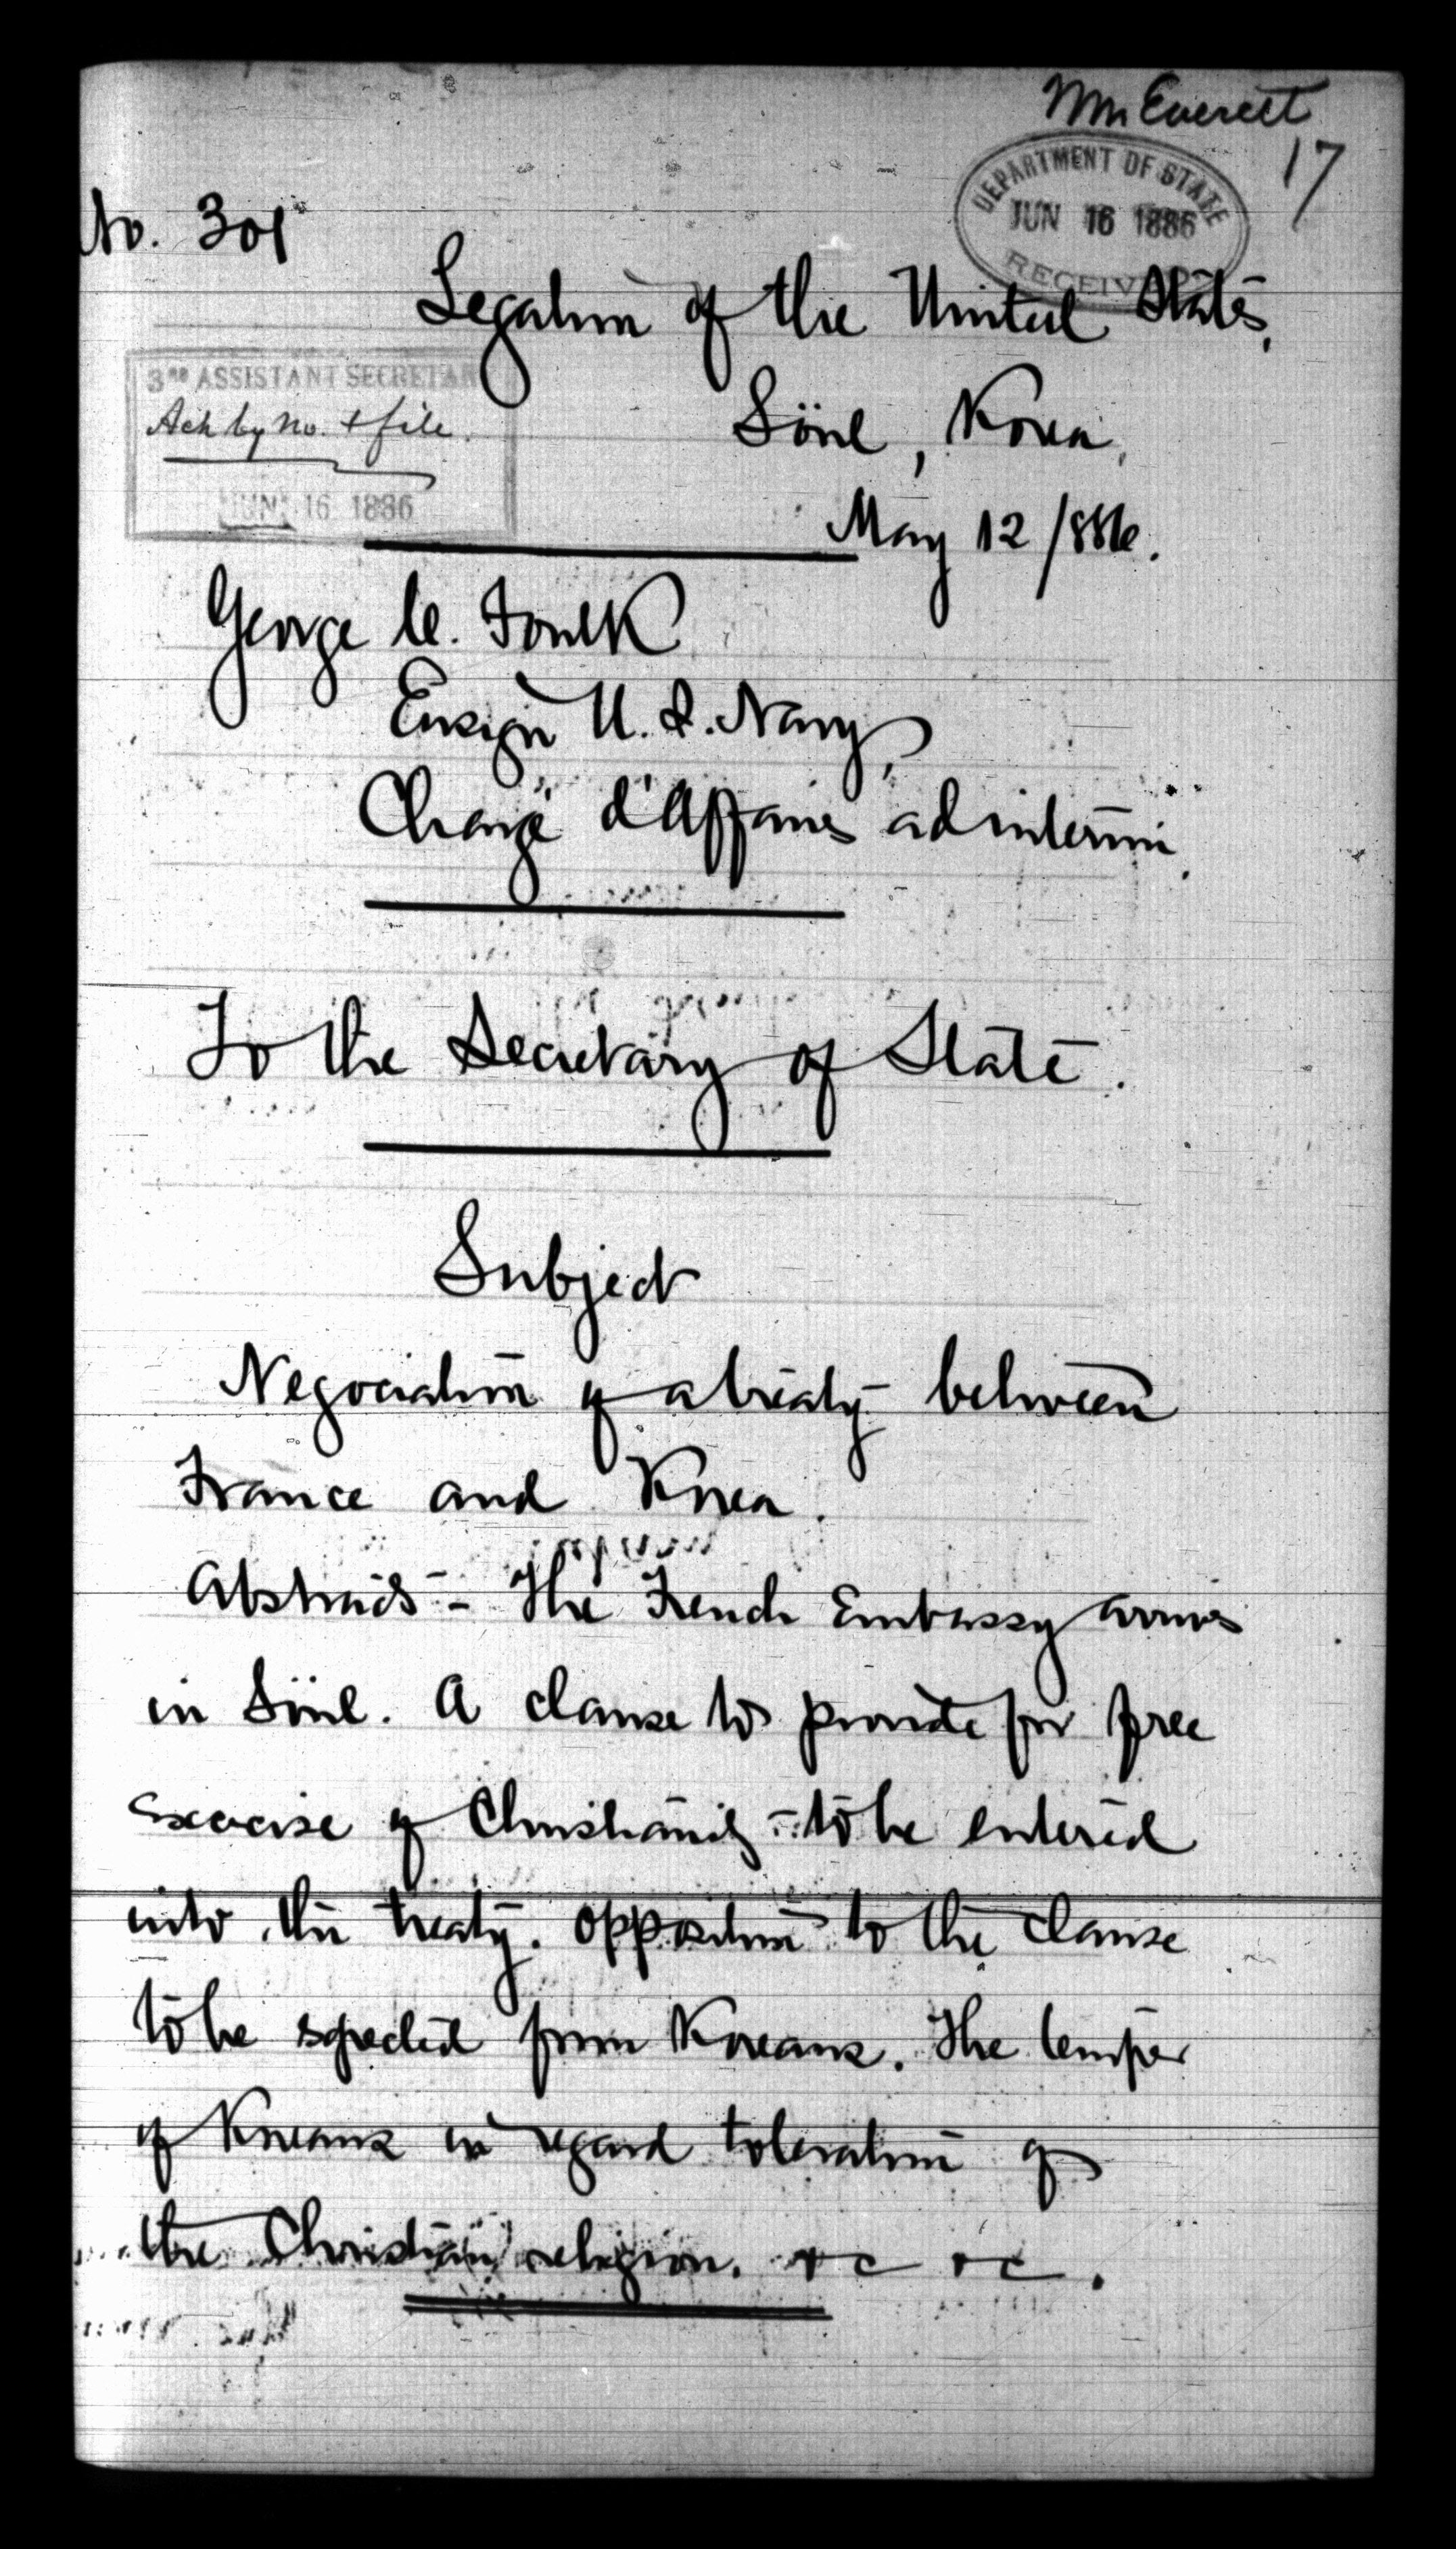 Mr Everett
17
DEPARTMENT OF STATE
JUN 16 1886
RECEIVED
No. 301
Legation of the United States,
Söul, Korea,
3RD ASSISTANT SECRETARY
Ack by no. & file.
JUN 16 1886
May 12/886.
George C. Foulk
Ensign U.S. Navy,
Chargé d'Affaires ad interim,
To the Secretary of State.
Subject
Negociation of a treaty between
France and Korea.
Abstract - The French Embassy arrives
in Söul. A clause to provide for free
exercise of Christianity to be entered
into the treaty. Opposition to the clause
to be expected from Koreans. The temper
of Koreans in regard toleration of
the Christian religion. &c &c.